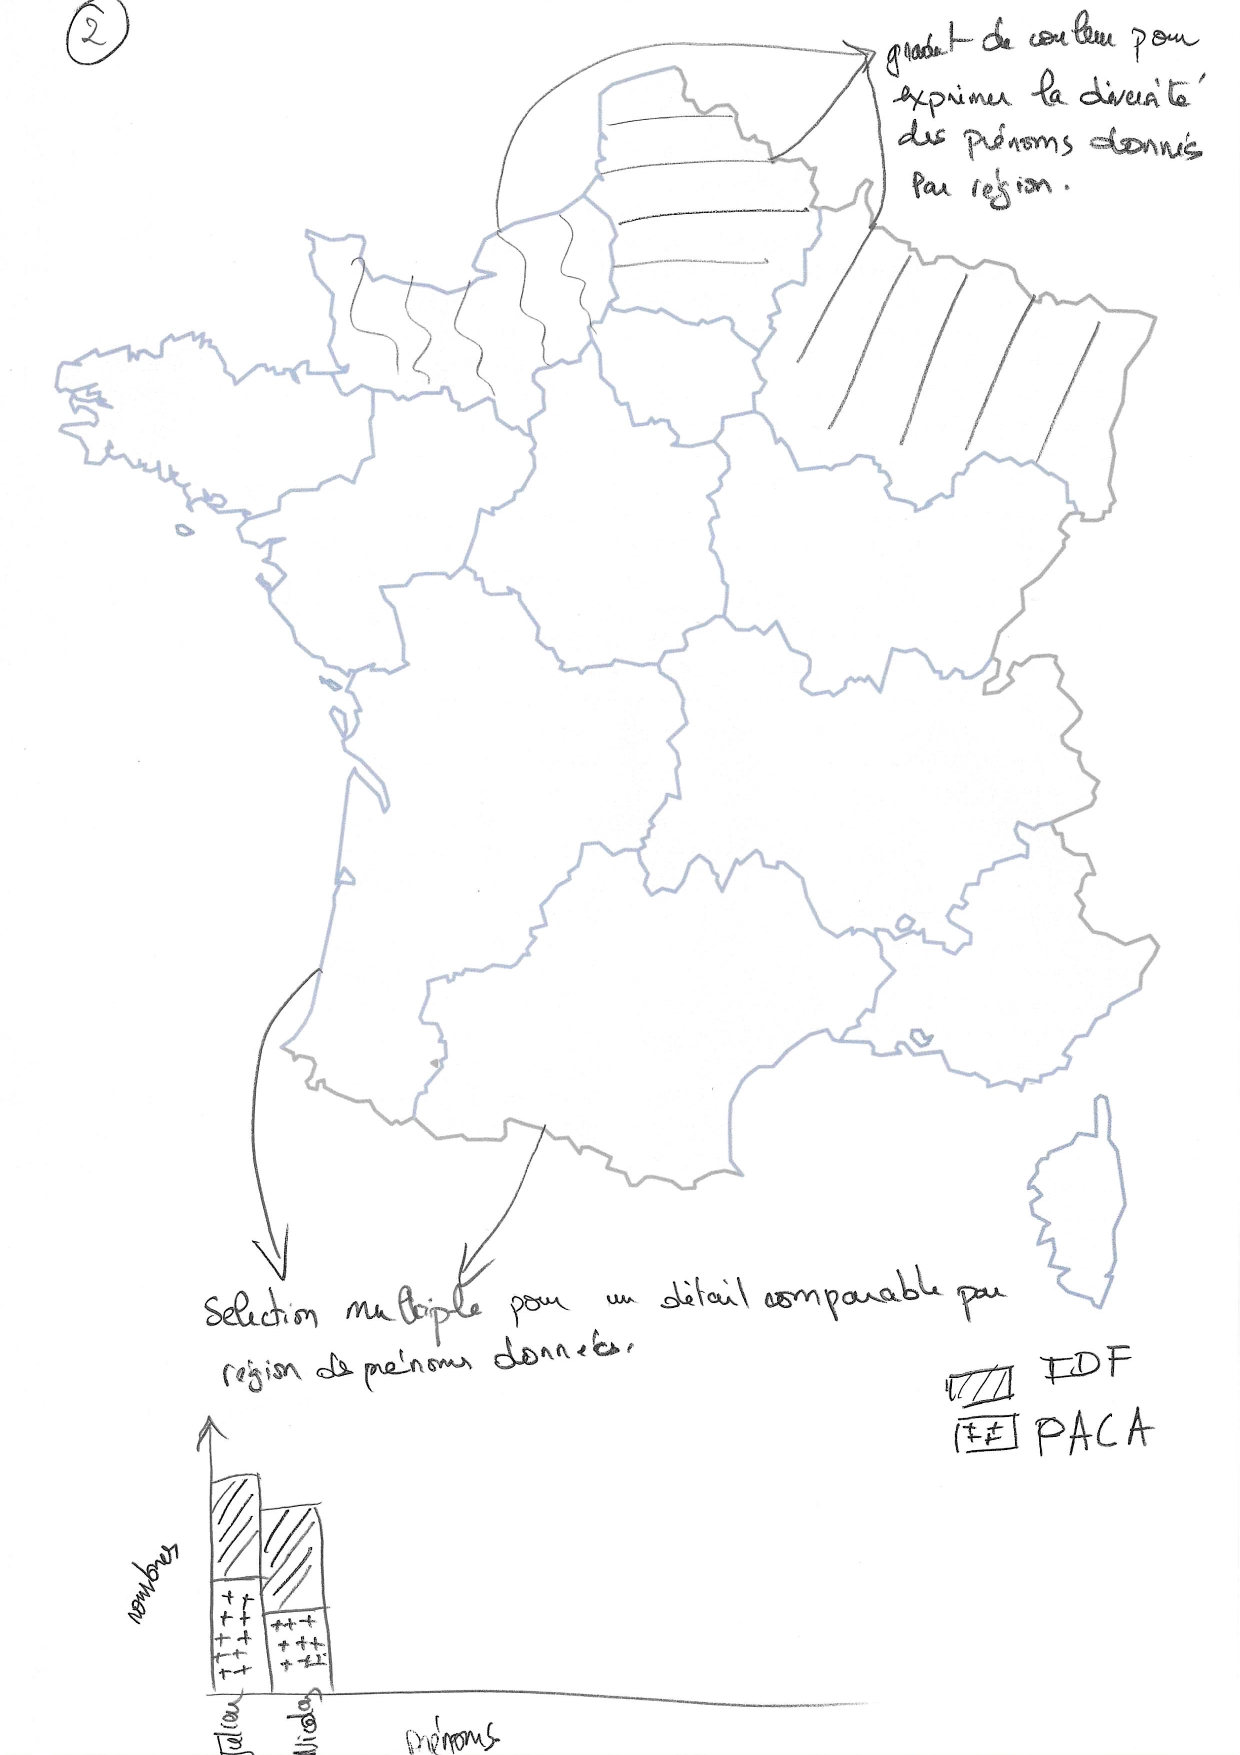 2
gradient de couleur pour
exprimer la diversité
des prénoms donnés
par région.
Selection multiple pour un détail comparable par
région de prénoms donnés.
IDF
PACA
nombres
Julien
Nicolas
prénoms